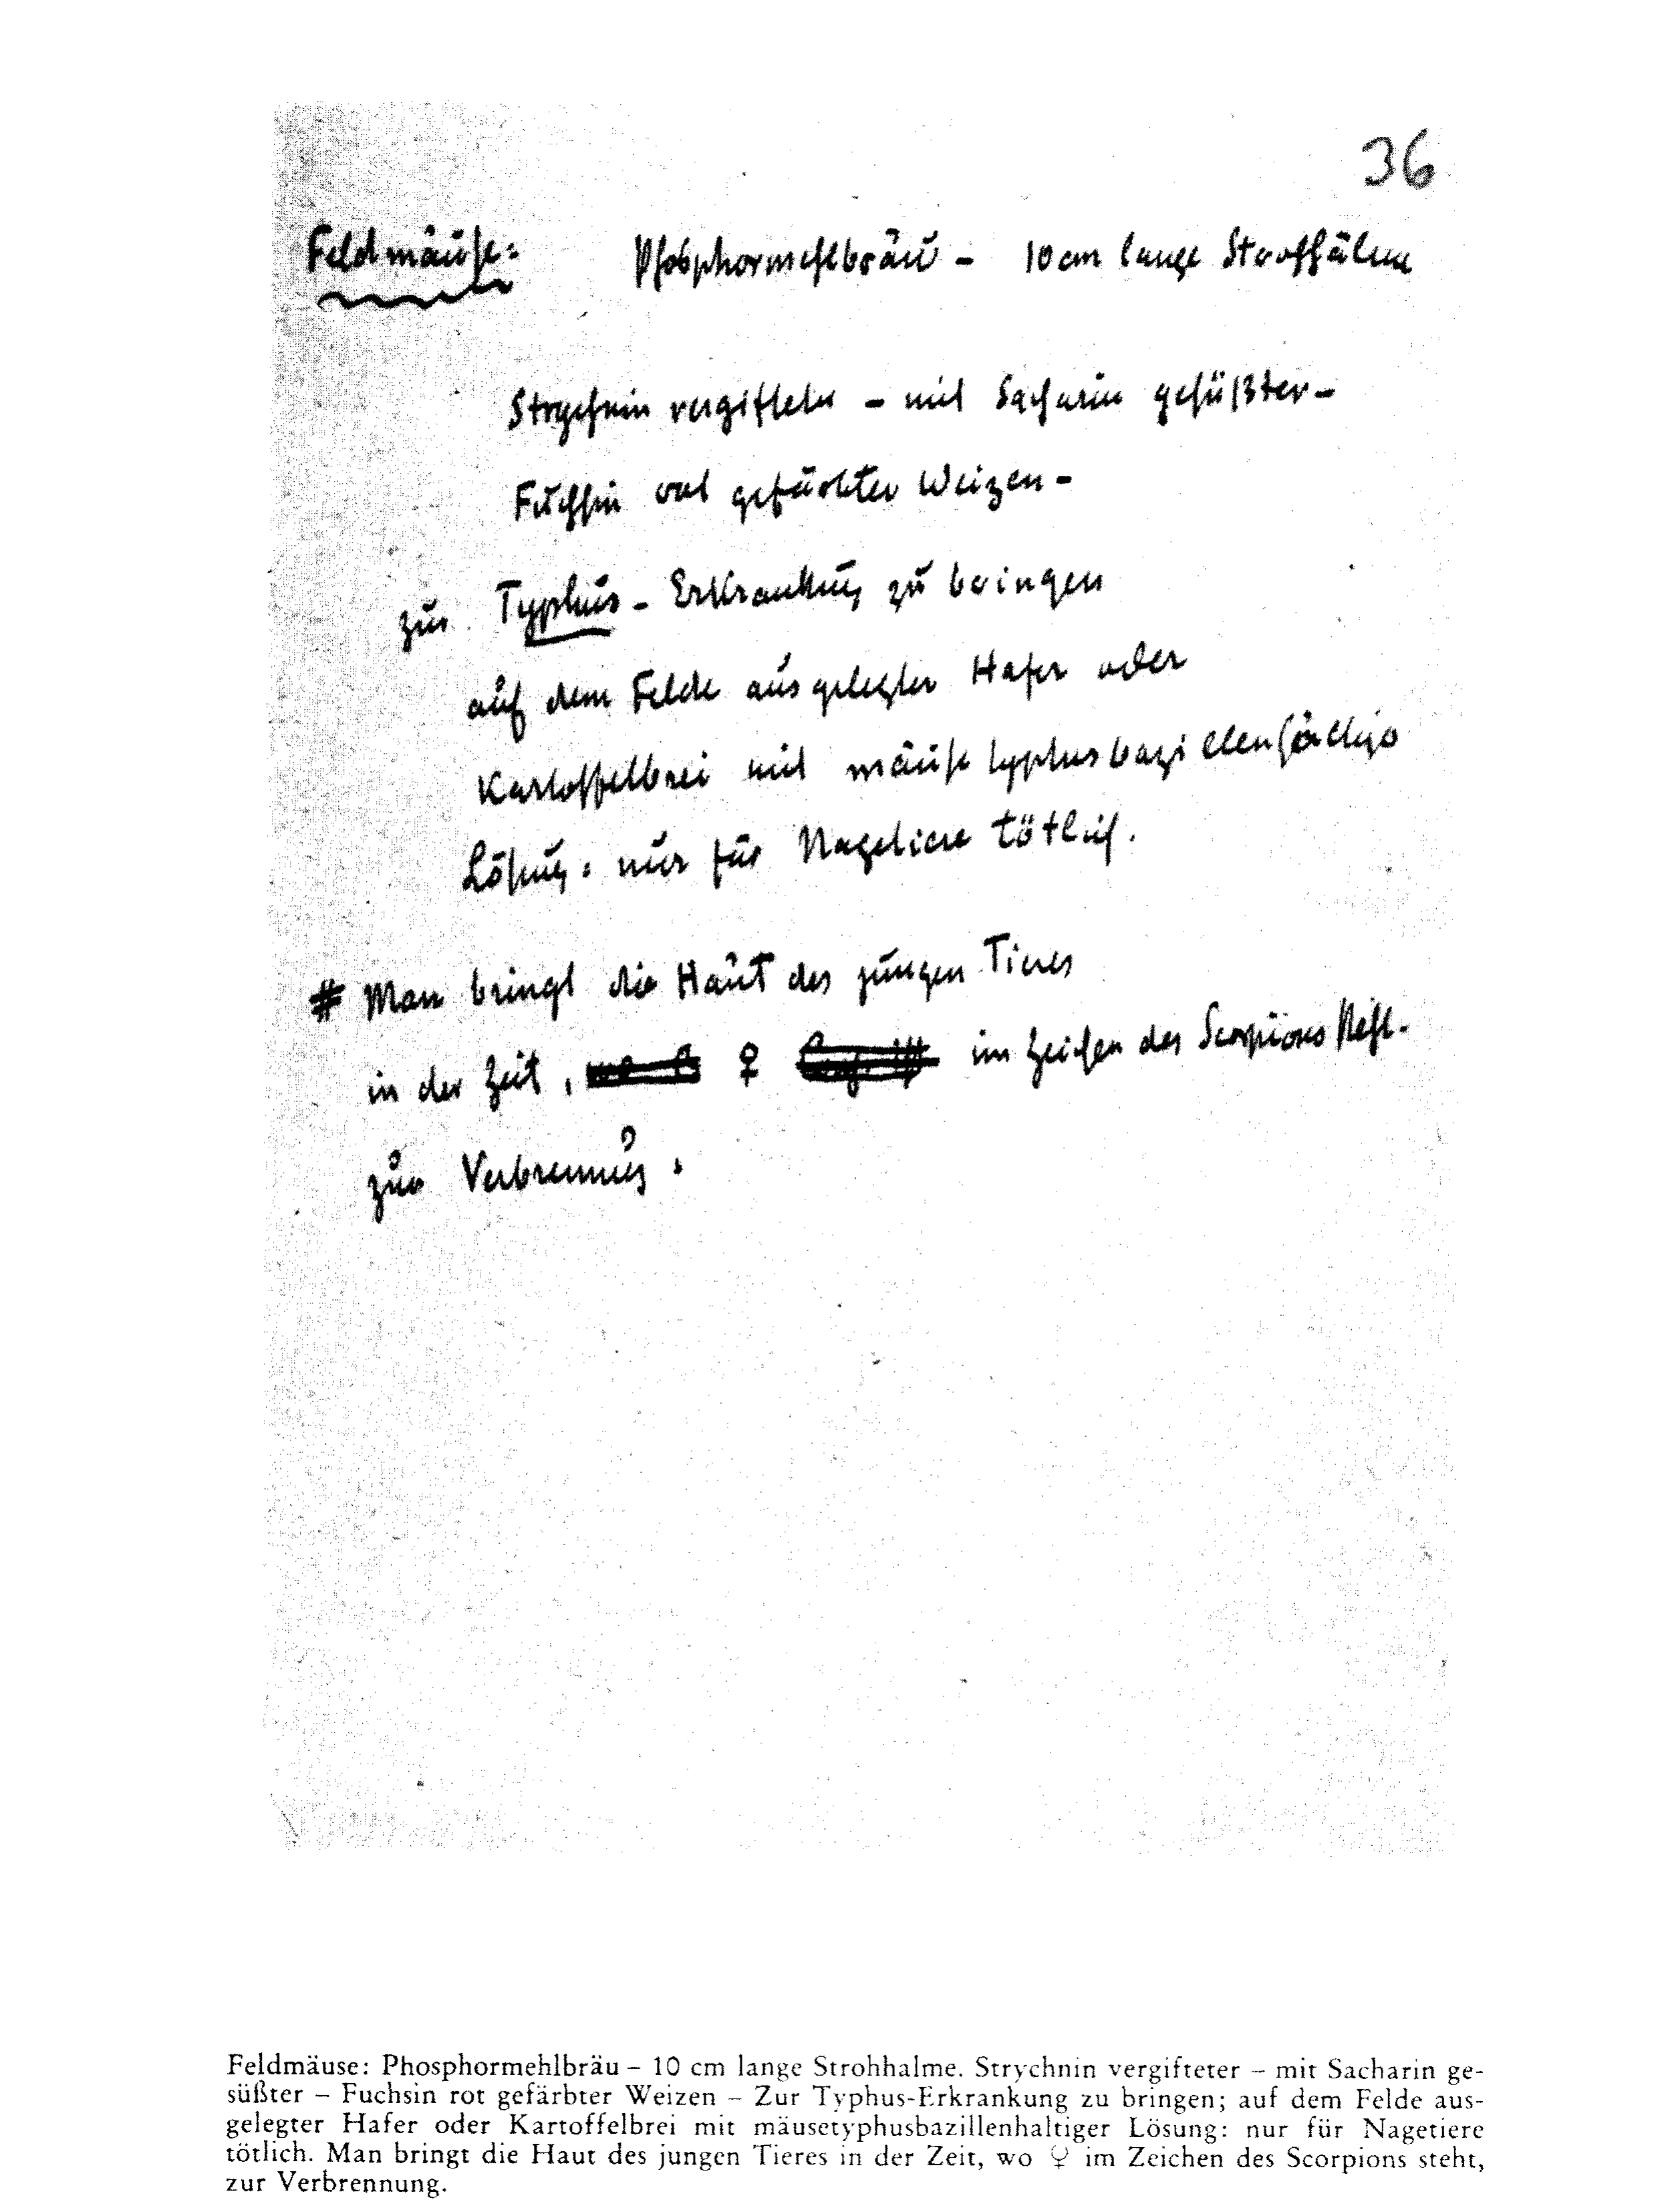 36
Feldmäuse: Phosphormehlbräu – 10 cm lange Strohhälme
Strychnin vergifteter – mit Sacharin gesüßter –
Fuchsin rot gefärbter Weizen –
zur Typhus – Erkrankung zu bringen
auf dem Felde ausgelegter Hafer oder
Kartoffelbrei mit mäusetyphusbazillenhältiger
Lösung: nur für Nagetiere tötlich.
# Man bringt die Haut des jungen Tieres
in der Zeit, ♀ im Zeichen des Scorpions steht.
zur Verbrennung.
Feldmäuse: Phosphormehlbräu – 10 cm lange Strohhalme. Strychnin vergifteter – mit Sacharin ge-
süßter – Fuchsin rot gefärbter Weizen – Zur Typhus-Erkrankung zu bringen; auf dem Felde aus-
gelegter Hafer oder Kartoffelbrei mit mäusetyphusbazillenhaltiger Lösung: nur für Nagetiere
tötlich. Man bringt die Haut des jungen Tieres in der Zeit, wo ♀ im Zeichen des Scorpions steht,
zur Verbrennung.